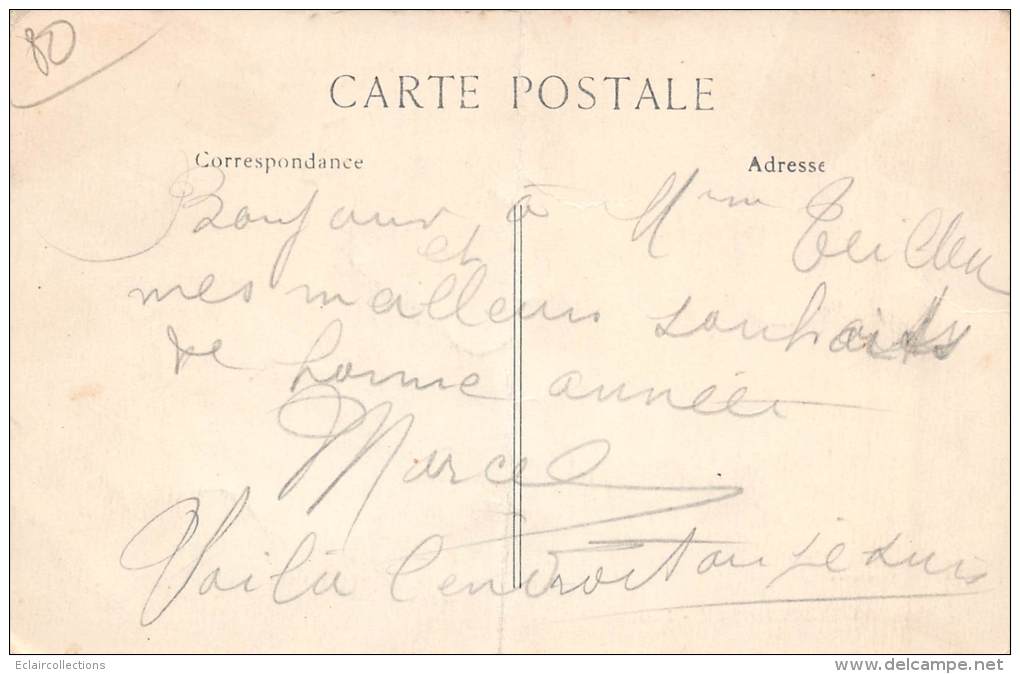 80
CARTE POSTALE
Correspondance
Adresse
Bonjour à Mme
et
mes meilleurs souhaits
de bonne année
Marcel
Voilà l'endroit ou je suis
Eclaircollections
www.delcampe.net